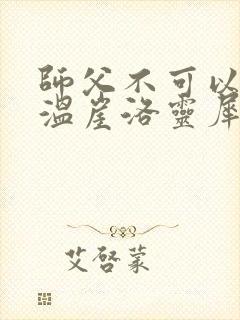 師父不可以
溫崖洛靈犀
艾啓蒙